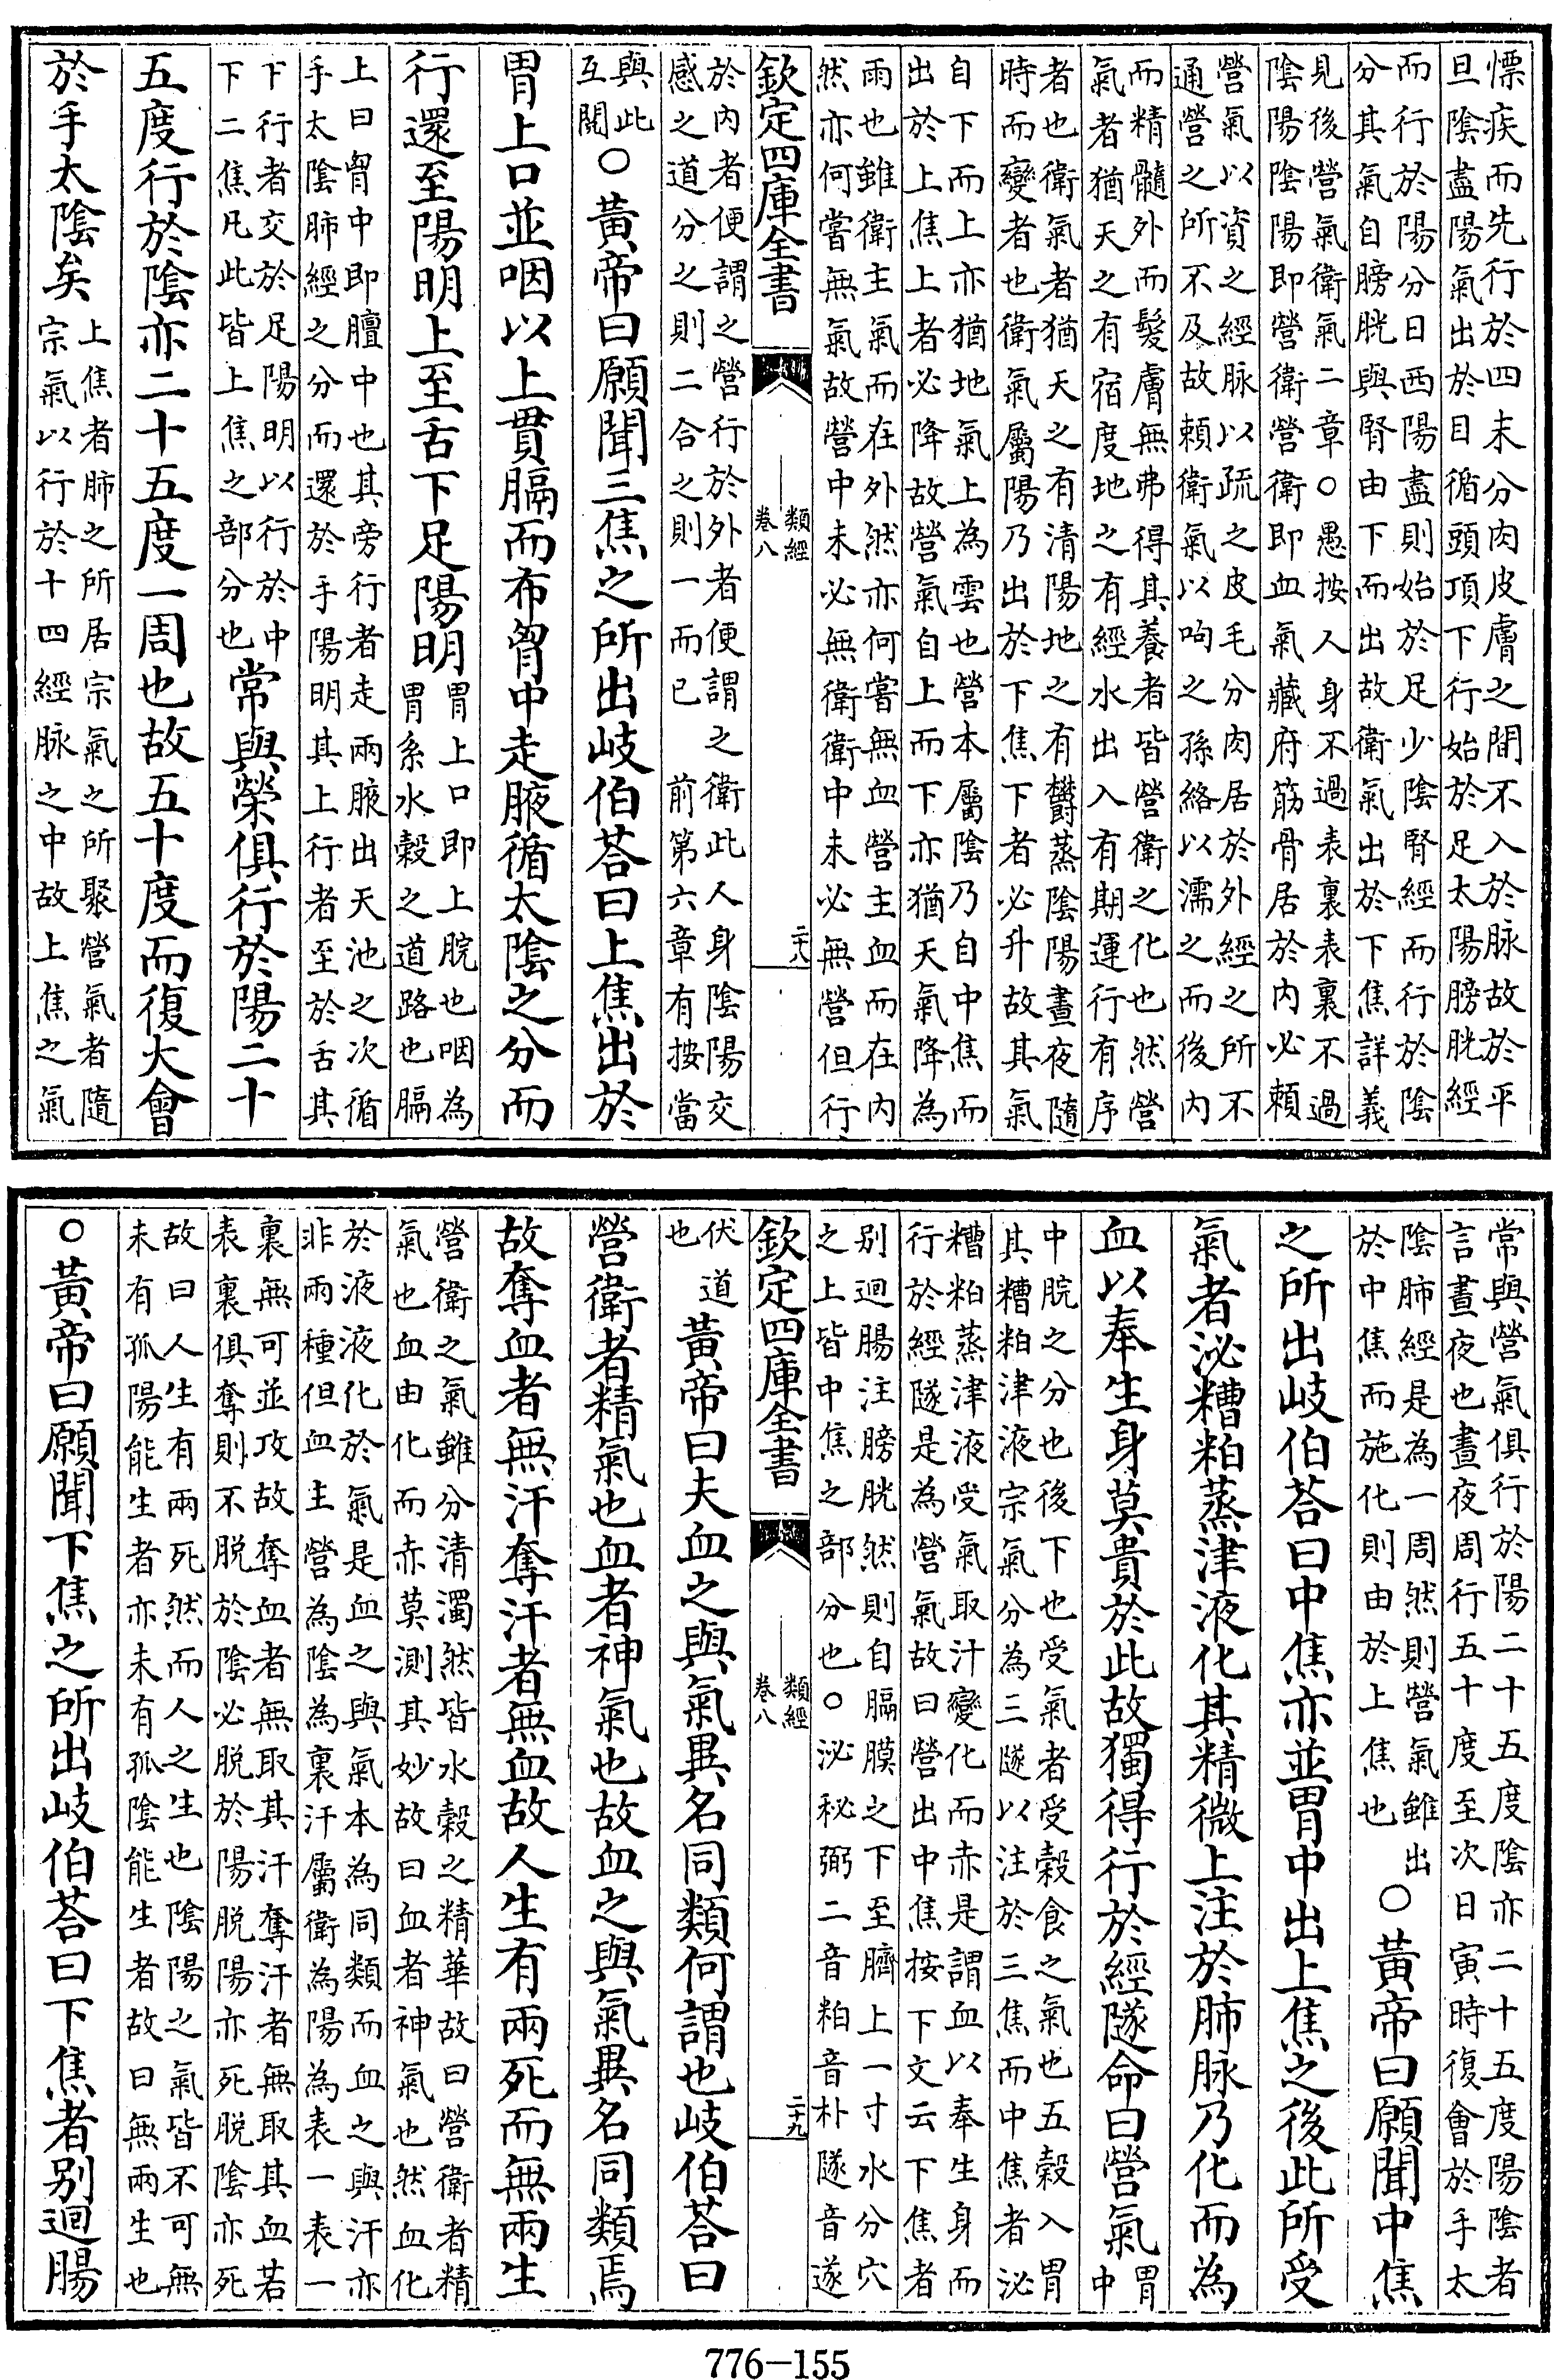 慓疾而先行於四末分肉皮膚之間不入於脉故於平
旦陰盡陽氣出於目循頭項下行始於足太陽膀胱經
而行於陽分日西陽盡則始於足少陰腎經而行於陰
分其氣自膀胱與腎由下而出故衛氣出於下焦詳義
見後營氣衛氣二章○愚按人身不過表裏表裏不過
陰陽陰陽即營衛營衛即血氣藏府筋骨居於内必頼
營氣以資之經脉以疏之皮毛分肉居於外經之所不
通營之所不及故頼衛氣以呴之孫絡以濡之而後内
而精髓外而髮膚無弗得其養者皆營衛之化也然營
氣者猶天之有宿度地之有經水出入有期運行有序
者也衛氣者猶天之有清陽地之有欝蒸陰陽晝夜隨
時而變者也衛氣屬陽乃出於下焦下者必升故其氣
自下而上亦猶地氣上為雲也營本屬陰乃自中焦而
出於上焦上者必降故營氣自上而下亦猶天氣降為
雨也雖衛主氣而在外然亦何嘗無血營主血而在内
然亦何嘗無氣故營中未必無衛衛中未必無營但行
欽定四庫全書
類經
卷八
二十八
於内者便謂之營行於外者便謂之衛此人身陰陽交
感之道分之則二合之則一而已 前第六章有按當
與此
互閱
○黃帝曰願聞三焦之所出岐伯荅曰上焦出於
胃上口並咽以上貫膈而布胷中走腋循太陰之分而
行還至陽明上至舌下足陽明
胃上口即上脘也咽為
胃系水穀之道路也膈
上曰胷中即膻中也其旁行者走兩腋出天池之次循
手太陰肺經之分而還於手陽明其上行者至於舌其
下行者交於足陽明以行於中
下二焦凡此皆上焦之部分也
常與榮俱行於陽二十
五度行於陰亦二十五度一周也故五十度而復大會
於手太陰矣
上焦者肺之所居宗氣之所聚營氣者隨
宗氣以行於十四經脉之中故上焦之氣
常與營氣俱行於陽二十五度陰亦二十五度陽陰者
言晝夜也晝夜周行五十度至次日寅時復會於手太
陰肺經是為一周然則營氣雖出
於中焦而施化則由於上焦也
○黃帝曰願聞中焦
之所出岐伯荅曰中焦亦並胃中出上焦之後此所受
氣者泌糟粕蒸津液化其精微上注於肺脉乃化而為
血以奉生身莫貴於此故獨得行於經隧命曰營氣
胃
中
中脘之分也後下也受氣者受穀食之氣也五穀入胃
其糟粕津液宗氣分為三隧以注於三焦而中焦者泌
糟粕蒸津液受氣取汁變化而赤是謂血以奉生身而
行於經隧是為營氣故曰營出中焦按下文云下焦者
別迴腸注膀胱然則自膈膜之下至臍上一寸水分穴
之上皆中焦之部分也○泌秘弼二音粕音朴隧音遂
欽定四庫全書
類經
卷八
二十九
伏 道
也
黃帝曰夫血之與氣異名同類何謂也岐伯荅曰
營衛者精氣也血者神氣也故血之與氣異名同類焉
故奪血者無汗奪汗者無血故人生有兩死而無兩生
營衛之氣雖分清濁然皆水穀之精華故曰營衛者精
氣也血由化而赤莫測其妙故曰血者神氣也然血化
於液液化於氣是血之與氣本為同類而血之與汗亦
非兩種但血主營為陰為裏汗屬衛為陽為表一表一
裏無可並攻故奪血者無取其汗奪汗者無取其血若
表裏俱奪則不脱於陰必脱於陽脱陽亦死脱陰亦死
故曰人生有兩死然而人之生也陰陽之氣皆不可無
未有孤陽能生者亦未有孤陰能生者故曰無兩生也
○黃帝曰願聞下焦之所出岐伯荅曰下焦者別迴腸
776-155